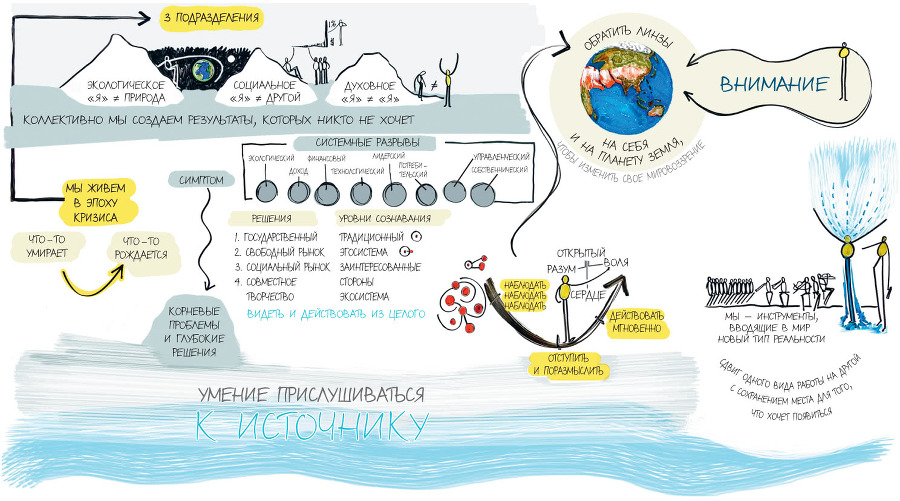 3 ПОДРАЗДЕЛЕНИЯ
ЭКОЛОГИЧЕСКОЕ
«Я» ≠ ПРИРОДА
СОЦИАЛЬНОЕ
«Я» ≠ ДРУГОЙ
ДУХОВНОЕ
«Я» ≠ «Я»
≠
КОЛЛЕКТИВНО МЫ СОЗДАЕМ РЕЗУЛЬТАТЫ, КОТОРЫХ НИКТО НЕ ХОЧЕТ
МЫ ЖИВЕМ
В ЭПОХУ
КРИЗИСА
ЧТО-ТО
УМИРАЕТ
ЧТО-ТО
РОЖДАЕТСЯ
СИМПТОМ
СИСТЕМНЫЕ РАЗРЫВЫ
ЭКОЛОГИЧЕСКИЙ
ДОХОД
ФИНАНСОВЫЙ
ТЕХНОЛОГИЧЕСКИЙ
ЛИДЕРСКИЙ
ПОТРЕБИ-
ТЕЛЬСКИЙ
УПРАВЛЕНЧЕСКИЙ
СОБСТВЕННИЧЕСКИЙ
РЕШЕНИЯ
1. ГОСУДАРСТВЕННЫЙ
2. СВОБОДНЫЙ РЫНОК
3. СОЦИАЛЬНЫЙ РЫНОК
4. СОВМЕСТНОЕ
ТВОРЧЕСТВО
УРОВНИ СОЗНАВАНИЯ
ТРАДИЦИОННЫЙ
ЭГОСИСТЕМА
ЗАИНТЕРЕСОВАННЫЕ
СТОРОНЫ
ЭКОСИСТЕМА
ВИДЕТЬ И ДЕЙСТВОВАТЬ ИЗ ЦЕЛОГО
КОРНЕВЫЕ
ПРОБЛЕМЫ
И ГЛУБОКИЕ
РЕШЕНИЯ
УМЕНИЕ ПРИСЛУШИВАТЬСЯ
К ИСТОЧНИКУ
НАБЛЮДАТЬ
НАБЛЮДАТЬ
НАБЛЮДАТЬ
ОТКРЫТЫЙ
РАЗУМ
ВОЛЯ
СЕРДЦЕ
ОТСТУПИТЬ
И ПОРАЗМЫСЛИТЬ
ДЕЙСТВОВАТЬ
МГНОВЕННО
ОБРАТИТЬ ЛИНЗЫ
НА СЕБЯ
И НА ПЛАНЕТУ ЗЕМЛЯ,
ЧТОБЫ ИЗМЕНИТЬ СВОЕ МИРОВОЗЗРЕНИЕ
ВНИМАНИЕ
МЫ – ИНСТРУМЕНТЫ,
ВВОДЯЩИЕ В МИР
НОВЫЙ ТИП РЕАЛЬНОСТИ
СДВИГ ОДНОГО ВИДА РАБОТЫ НА ДРУГОЙ
С СОХРАНЕНИЕМ МЕСТА ДЛЯ ТОГО,
ЧТО ХОЧЕТ ПОЯВИТЬСЯ